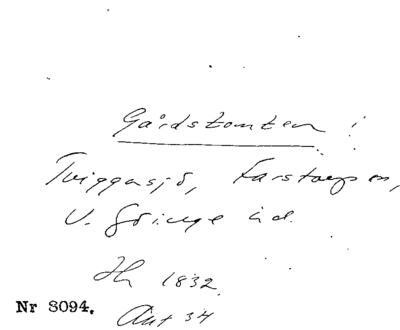 Gårdstomten!
Tviggasjö, Farstorps sn,
V. Göinge hd.
Ih 1832.
Nr 8094. Ant 34